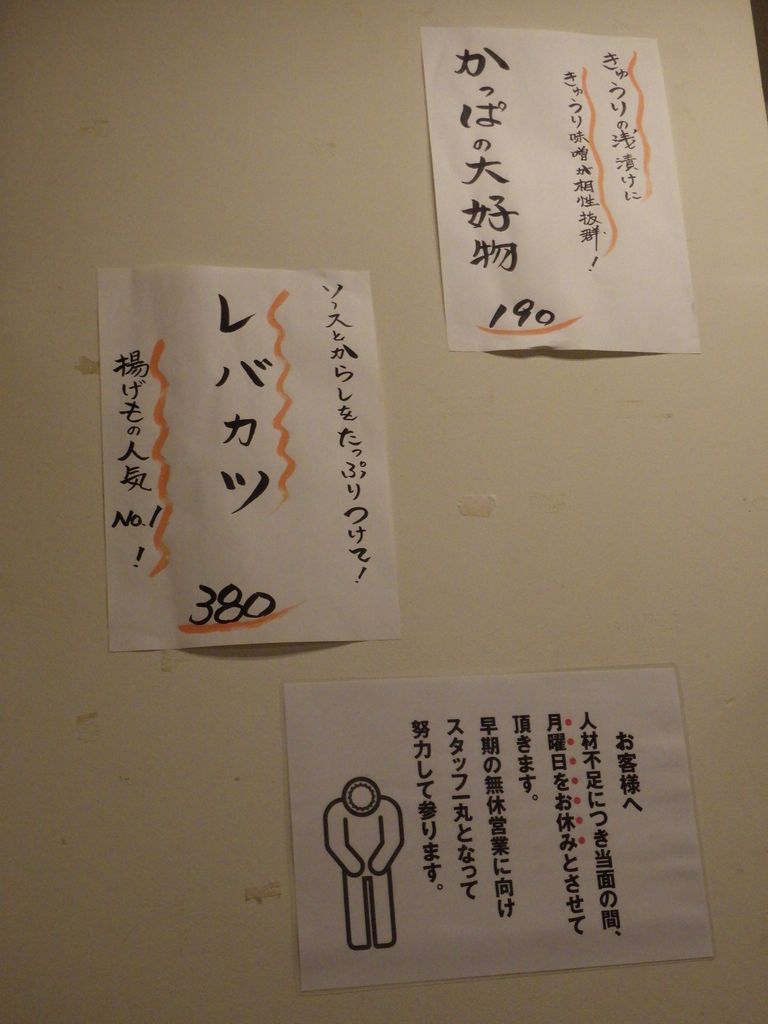 きゅうりの浅漬けに
きゅうり味噌が相性抜群!
かっぱの大好物
190
ソースとからしをたっぷりつけて!
レバカツ
380
揚げもの人気No.1!
お客様へ
人材不足につき当面の間、
月曜日をお休みとさせて
頂きます。
早期の無休営業に向け
スタッフ一丸となって
努力して参ります。